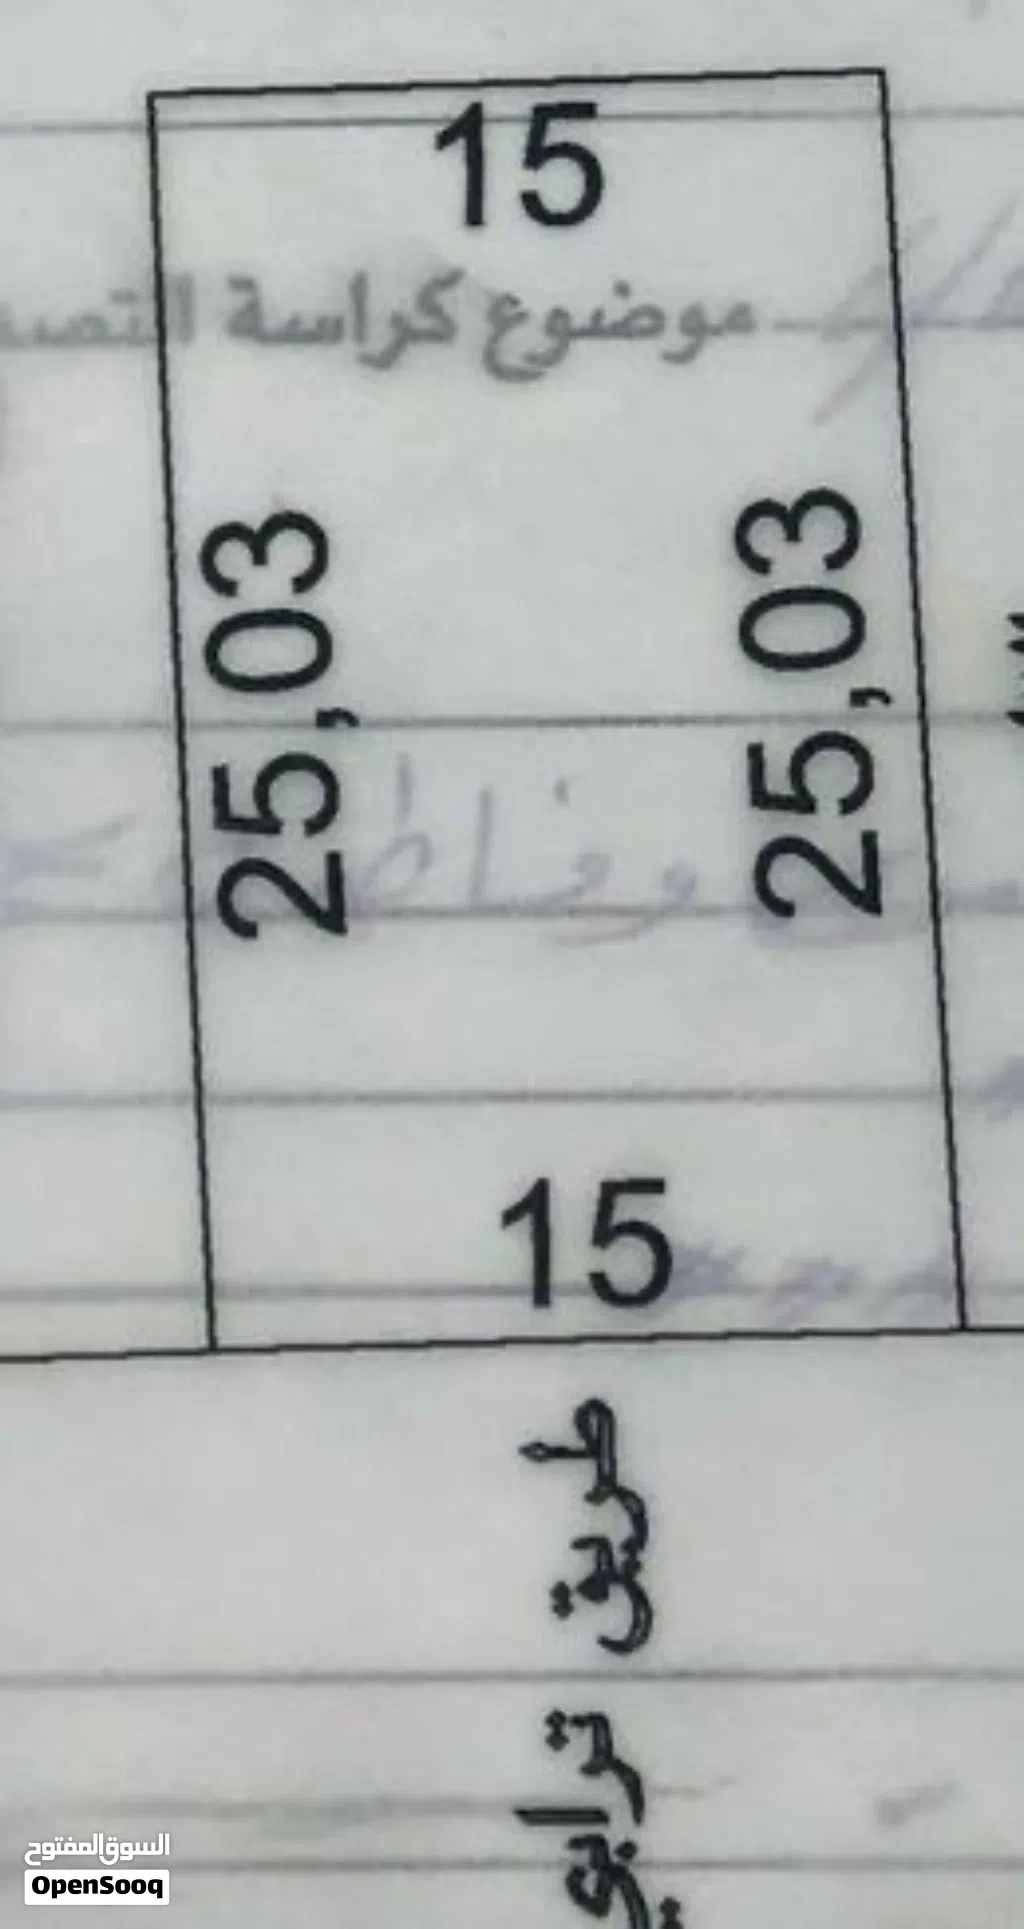 15
موضوع كراسة
25,03
25,03
15
طريق ترابي
السوق المفتوح
OpenSooq